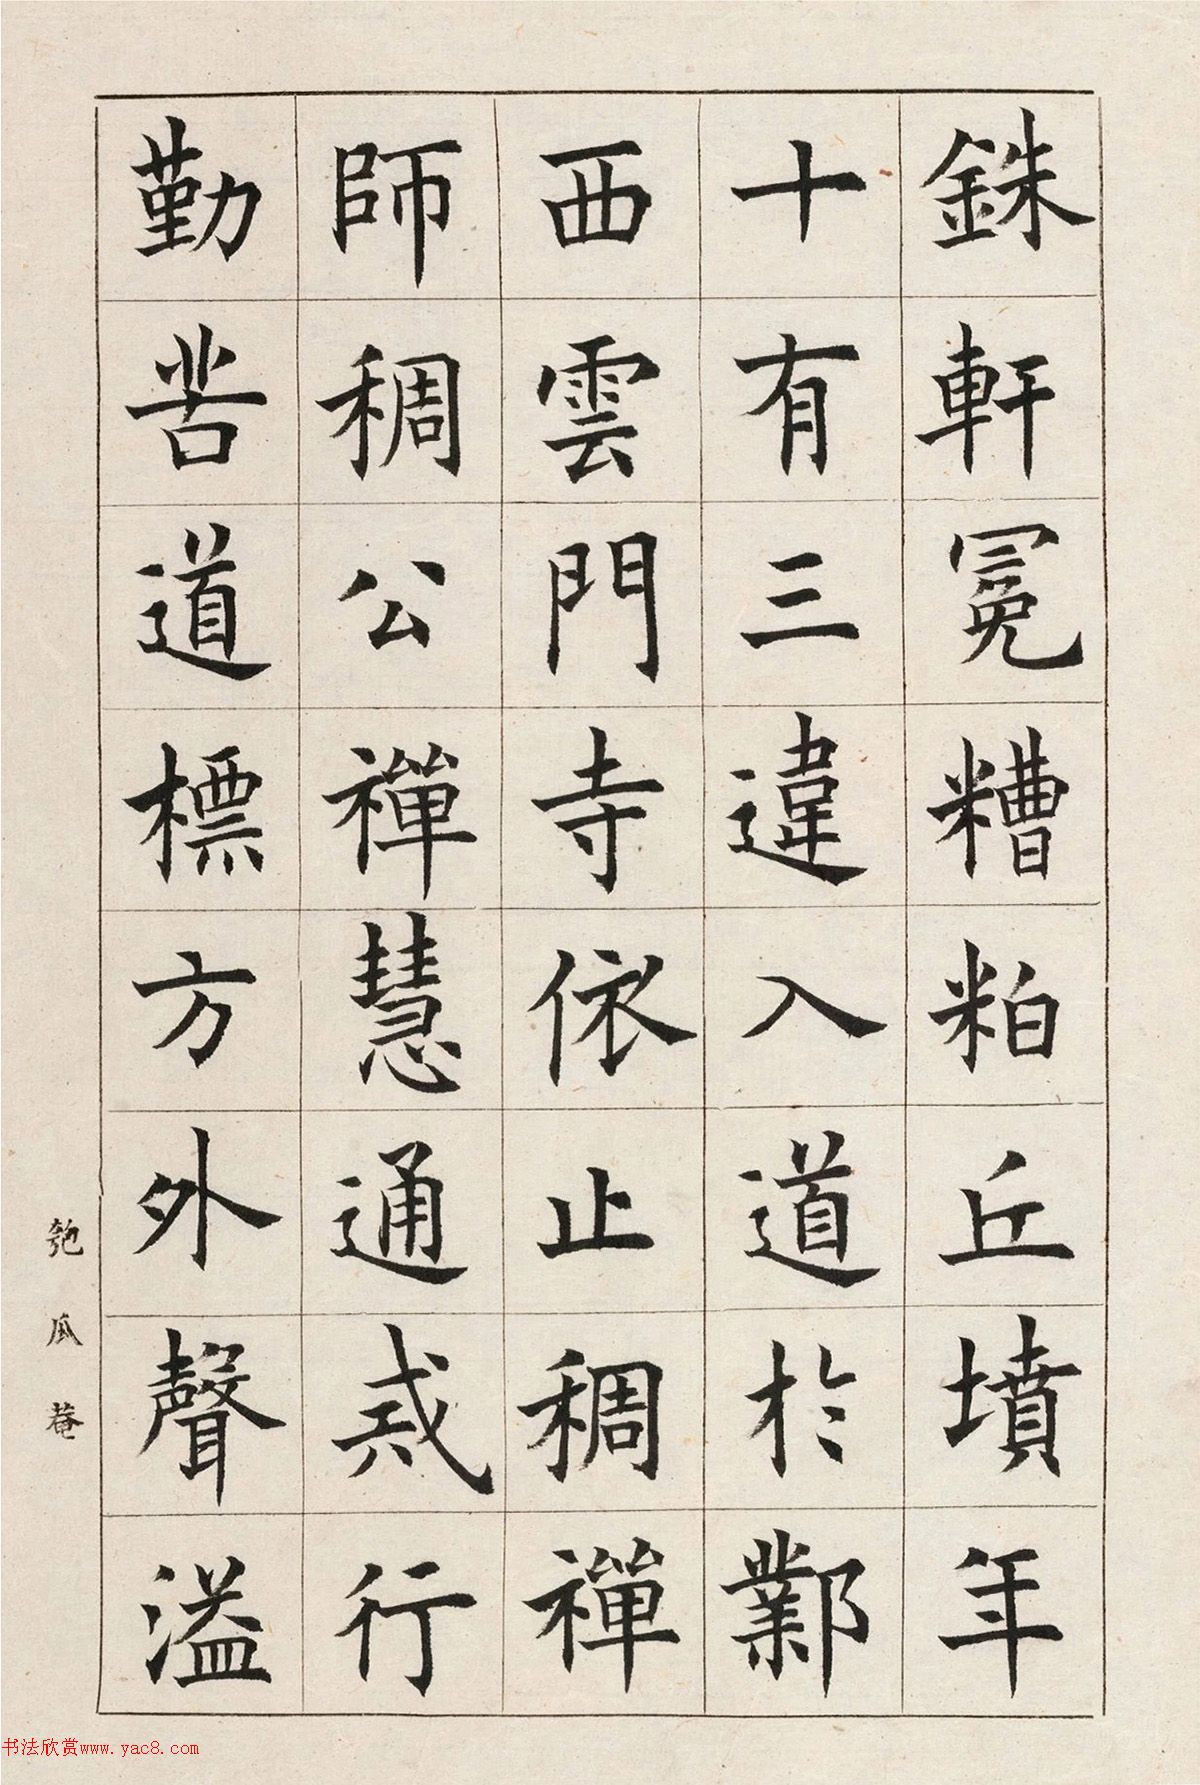 銖軒冕糟粕丘墳年
十有三違入道於鄴
西雲門寺依止稠禪
師稠公禪慧通戒行
勤苦道標方外聲溢
匏瓜菴
书法欣赏www.yac8.com